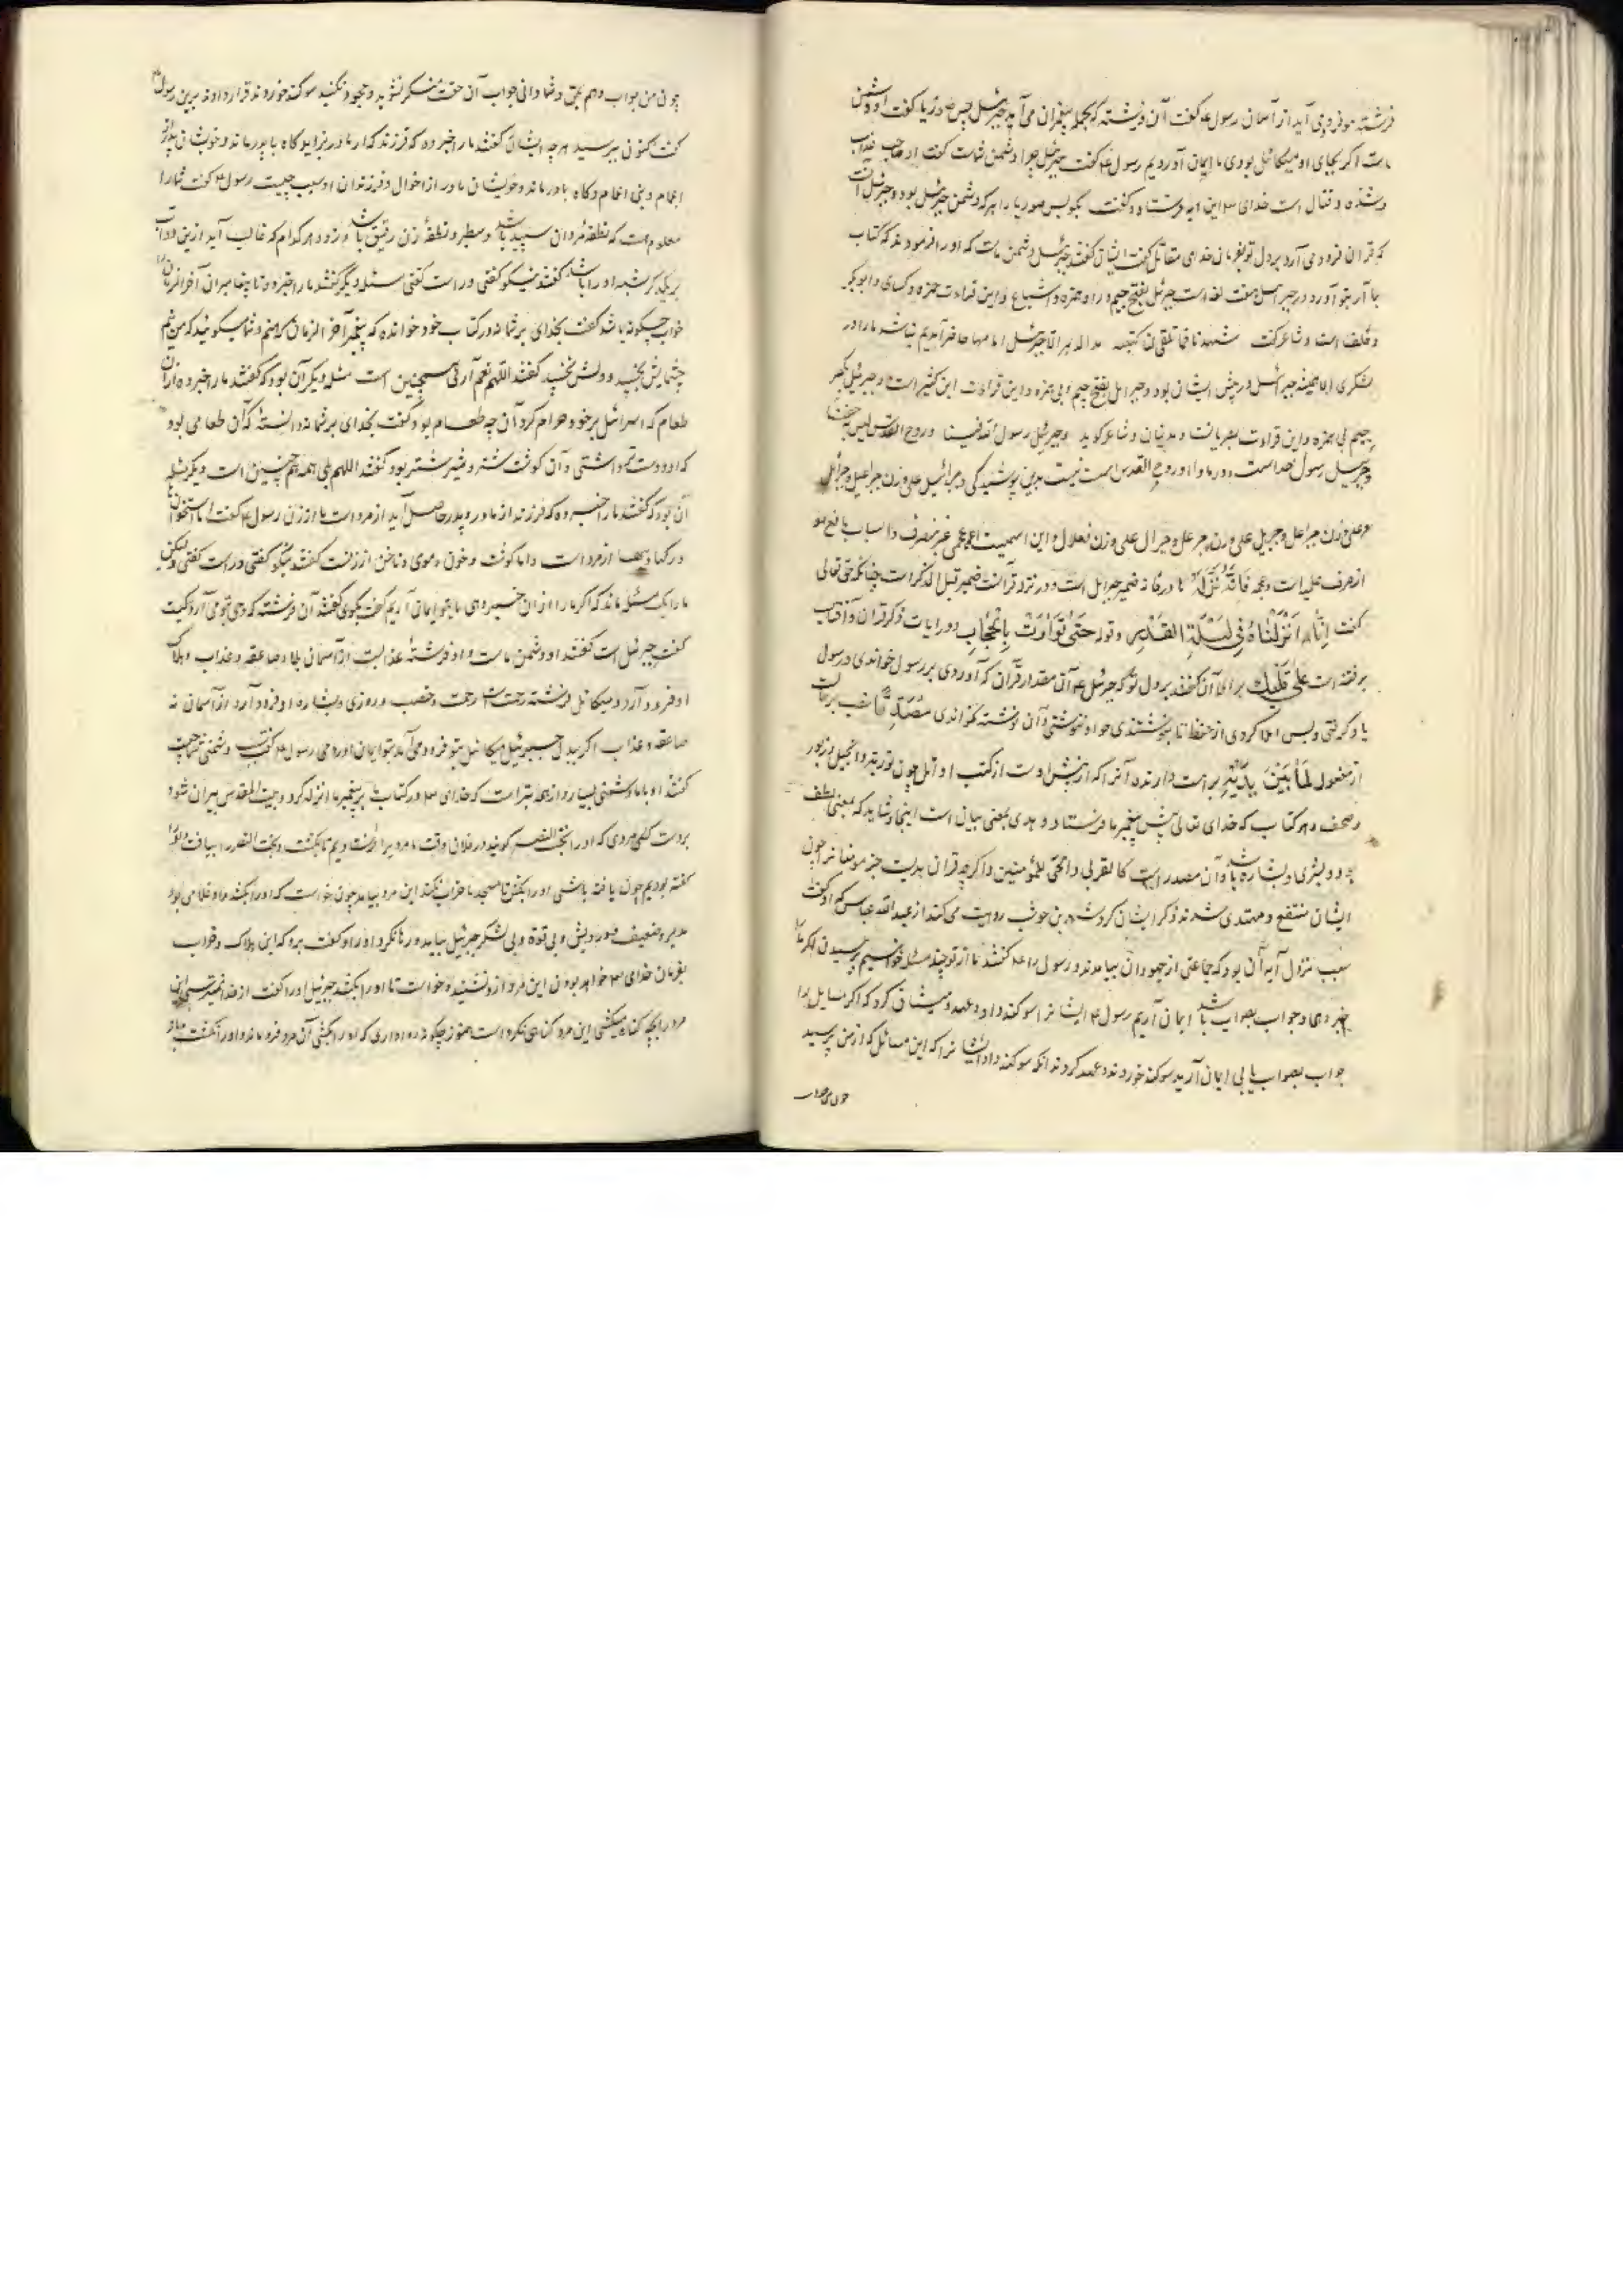 فرشته مو فرومی آید از آسمان رسول ع گفت آن فرشته که بجمله پیغمبران می آید جبرئیل پس صوریا گفت او دشمن
ماست اگر بجای او میکائیل بودی ما ایمان آوردیم رسول ع گفت جبرئیل چرا دشمن شماست گفت او صاحب عذاب
و شده و قتال است خدای این آیه فرستاد و گفت بگو پس صوریا را هر که دشمن جبرئیل بود و جبرئیل آنست
که قرآن فرود می آرد بر دل تو بفرمان خدای مقاتل گفت ایشان گفتند جبرئیل دشمن ماست که او را فرمودند که کتاب
بما آر بتو آورد در جبرئیل هفت لغه است جبرئیل بفتح جیم و را و همزه و اشباع و این قراءت حمزه و کسای و ابوبکر
و خلف است و شاعر گفت شهدنا فما تلقی لنا کتیبه مدالدهر الا جبرئیل امامها حاضر آمدیم نباشد ما را در
لشکری الا همیشه جبرئیل در پیش ایشان بود و جبریل بفتح جیم و بی همزه و این قراءت ابن کثیر است و جبریل بکسر
جیم بی همزه و این قراءت بصریانست و مدنیان و شاعر گوید و جبریل رسول الله فینا و روح القدس لیس به خفا
و جبریل رسول خداست در ما و او روح القدس است نیست بدین پوشیدگی و جبرائیل علی وزن جبراعیل و جبرائل
بر علی وزن جبراعل و جبرئل علی وزن جبرعل و جبرال علی وزن فعلال و این اسمیست اعجمی غیر منصرف و اسباب مانع
از صرف علمیا است و عجمه فَاِنَّهُ نَزَّلَهُ ها در فانه ضمیر جبرئیل است و در نزله قرآنست ضمیر قبل الذکر است چنانکه حق تعالی
گفت اِنَّا اَنْزَلْنَاهُ فِی لَیْلَةِ الْقَدْرِ و قوله حَتّیٰ تَوَارَتْ بِالْحِجَابِ در آیات ذکر قرآن و آفتاب
نرفته است عَلیٰ قَلْبِکَ برای آن گفتند بر دل تو که جبرئیل ع آن مقدار قرآن که آوردی بر رسول خواندی و رسول
یاد گرفتی و پس املا کردی از حفظ تا بنوشتندی و او ننوشتی و آن نوشته نخواندی مُصَدِّقًا نصب بر حالست
از مفعول لِمَا بَیْنَ یَدَیْهِ براست دارنده آنرا که از پیش اوست از کتب اوایل چون توریة و انجیل و زبور
و صحف و هر کتاب که خدای تعالی پیش پیغمبر ما فرستاد و هدی بمعنی بیان است اینجا و شاید که بمعنی لطف
بود و بشری و بشاره باشد و آن مصدر است کالقربی و الحمی للمؤمنین و اگرچه قرآن هدیست جز مؤمنانرا چون
ایشان منتفع و مهتدی شدند ذکر ایشان کرد شهر بن حوشب روایت می کند از عبدالله عباس که او گفت
سبب نزول آیه آن بود که جماعتی از جهودان بیامدند و رسول را ع گفتند ما از تو چند مسئله خواهیم پرسیدن اگر ما را
خبر دهی و جواب بصواب باشد ایمان آریم رسول ع ایشانرا سوگند داد و عهد و میثاق کرد که اگر مسایل را
جواب بصواب یابی ایمان آرید سوگند خوردند و عهد کردند آنگه سوگند داد ایشانرا که این مسائل که از من پرسید
چون من جواب
چون من جواب دهم بحق و شما دانی جواب آن حقست منکر نشوید و جحود نکنید سوگند خوردند و قرار دادند برین رسول ع
گفت اکنون بپرسید هر چه ایشان گفتند ما را خبر ده که فرزند که از مادر بزاید گاه با پدر ماند و خویشان پدر از
اعمام و بنی اعمام و گاه با مادر ماند و خویشان مادر از اخوال و فرزندان او سبب چیست رسول ع گفت شما را
معلوم است که نطفه مردان سپید باشد و سطبر و نطفه زن رقیق باشد و زرد هر کدام که غالب آید ازین دو آب
بر یکدیگر شبه او را باشد گفتند نیکو گفتی و راست گفتی مسئله دیگر گفتند ما را خبر ده تا پیغامبران آخر الزمان
خواب چگونه باشد گفت بخدای بر شما نه در کتاب خود خوانده که پیغمبر آخر الزمان که منم و شما میگویید که من نیم
چشمایش بخسپد و دلش نخسپد گفتند اللهم نعم آری همچنین است مسئله دیگر آن بود که گفتند ما را خبر ده از آن
طعام که اسرائیل بر خود حرام کرد آن چه طعام بود گفت بخدای بر شما نه دانسته که آن طعامی بود
که او دوست تر داشتی و آن گوشت شتر و شیر شتر بود گفتند اللهم بلی همه همچنین است دیگر مسئله
آن بود که گفتند ما را خبر ده که فرزند از مادر و پدر حاصل آید از مرد است یا از زن رسول ع گفت اما استخوان
و رگها و پیها از مرد است و اما گوشت و خون و موی و ناخن از زنست گفتند نیکو گفتی و راست گفتی و لیکن
ما را یک مسئله ماند که اگر ما را از آن خبر دهی ما بتو ایمان آریم گفت بگوی گفتند آن فرشته که وحی بتو می آرد کیست
گفت جبرئیل است گفتند او دشمن ماست و او فرشته عذابست از آسمان بلا و صاعقه و عذاب و هلاک
او فرود آرد و میکائیل فرشته رحمتست رحمت و خصب و روزی و بشاره او فرود آرد از آسمان نه
صاعقه و عذاب اگر بدل جبرئیل میکائیل بتو فرود می آمد بتو ایمان آوردمی رسول ع گفت دشمنی شما چیست
گفتند او با ما دشمنی بسیار و از همه بتر آنست که خدای در کتاب بر پیغمبر ما انزله کرد و بیت المقدس ویران شود
بر دست کفی مردی که او را بخت النصر گویند در فلان وقت ما مردیرا فرستادیم تا بگشت و بخت النصر را بیافت و او را
گفته بودیم چون یافته باشی او را بکش تا مسجد ما خراب نکند این مرد بیامد چون خواست که او را بکشد و او غلامی بود
مدبر و ضعیف و درویش و بی قوة و بی لشکر جبرئیل بیامد و رها نکرد او را و گفت برو که این هلاک و خراب
بفرمان خدای خواهد بودن این مرد ازو نشنید و خواست تا او را بکشد جبرئیل او را گفت از خدا نمیترسی این
مرد را بچه گناه میکشی این مرد گناهی نکرده است هنوز چگونه روا داری که او را بکشی آن مرد فرو ماند و او را نکشت و باز